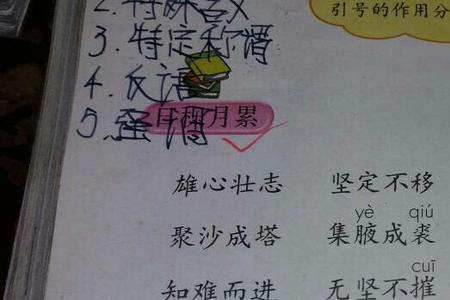 2.特殊含义
引号的作用分
3.特定称谓
4.反语
5.
日积月累
雄心壮志 坚定不移
yè qiú
聚沙成塔 集腋成裘
cuī
知难而进 无坚不摧